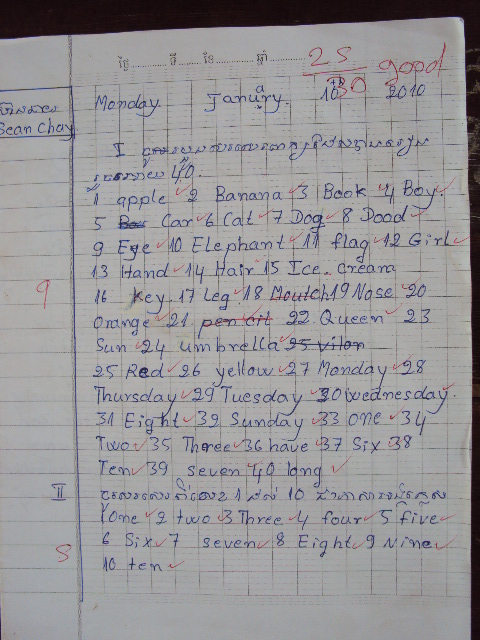 ថ្ងៃ............ទី............ខែ............ឆ្នាំ............
25
30
good
Sean Chay
Monday. January. 18 2010
I
40.
1 apple 2 Banana 3 Book 4 Boy.
5 Car 6 Cat 7 Dog 8 Dood
9 Eye 10 Elephant 11 flag 12 Girl
13 Hand 14 Hair 15 Ice. cream
9
16 Key. 17 Leg 18 Moutch 19 Nose 20
Orange 21 pen cit 22 Queen 23
Sun 24 umbrella 25 vilon
25 Red 26 yellow 27 Monday 28
Thursday 29 Tuesday 30 Wednesday.
31 Eight 32 Sunday 33 one 34
Two 35 Three 36 have 37 Six 38
Ten 39 seven 40 long
II 1 ដល់ 10
1 One 2 two 3 Three 4 four 5 five
6 Six 7 seven 8 Eight 9 Nine
5
10 ten